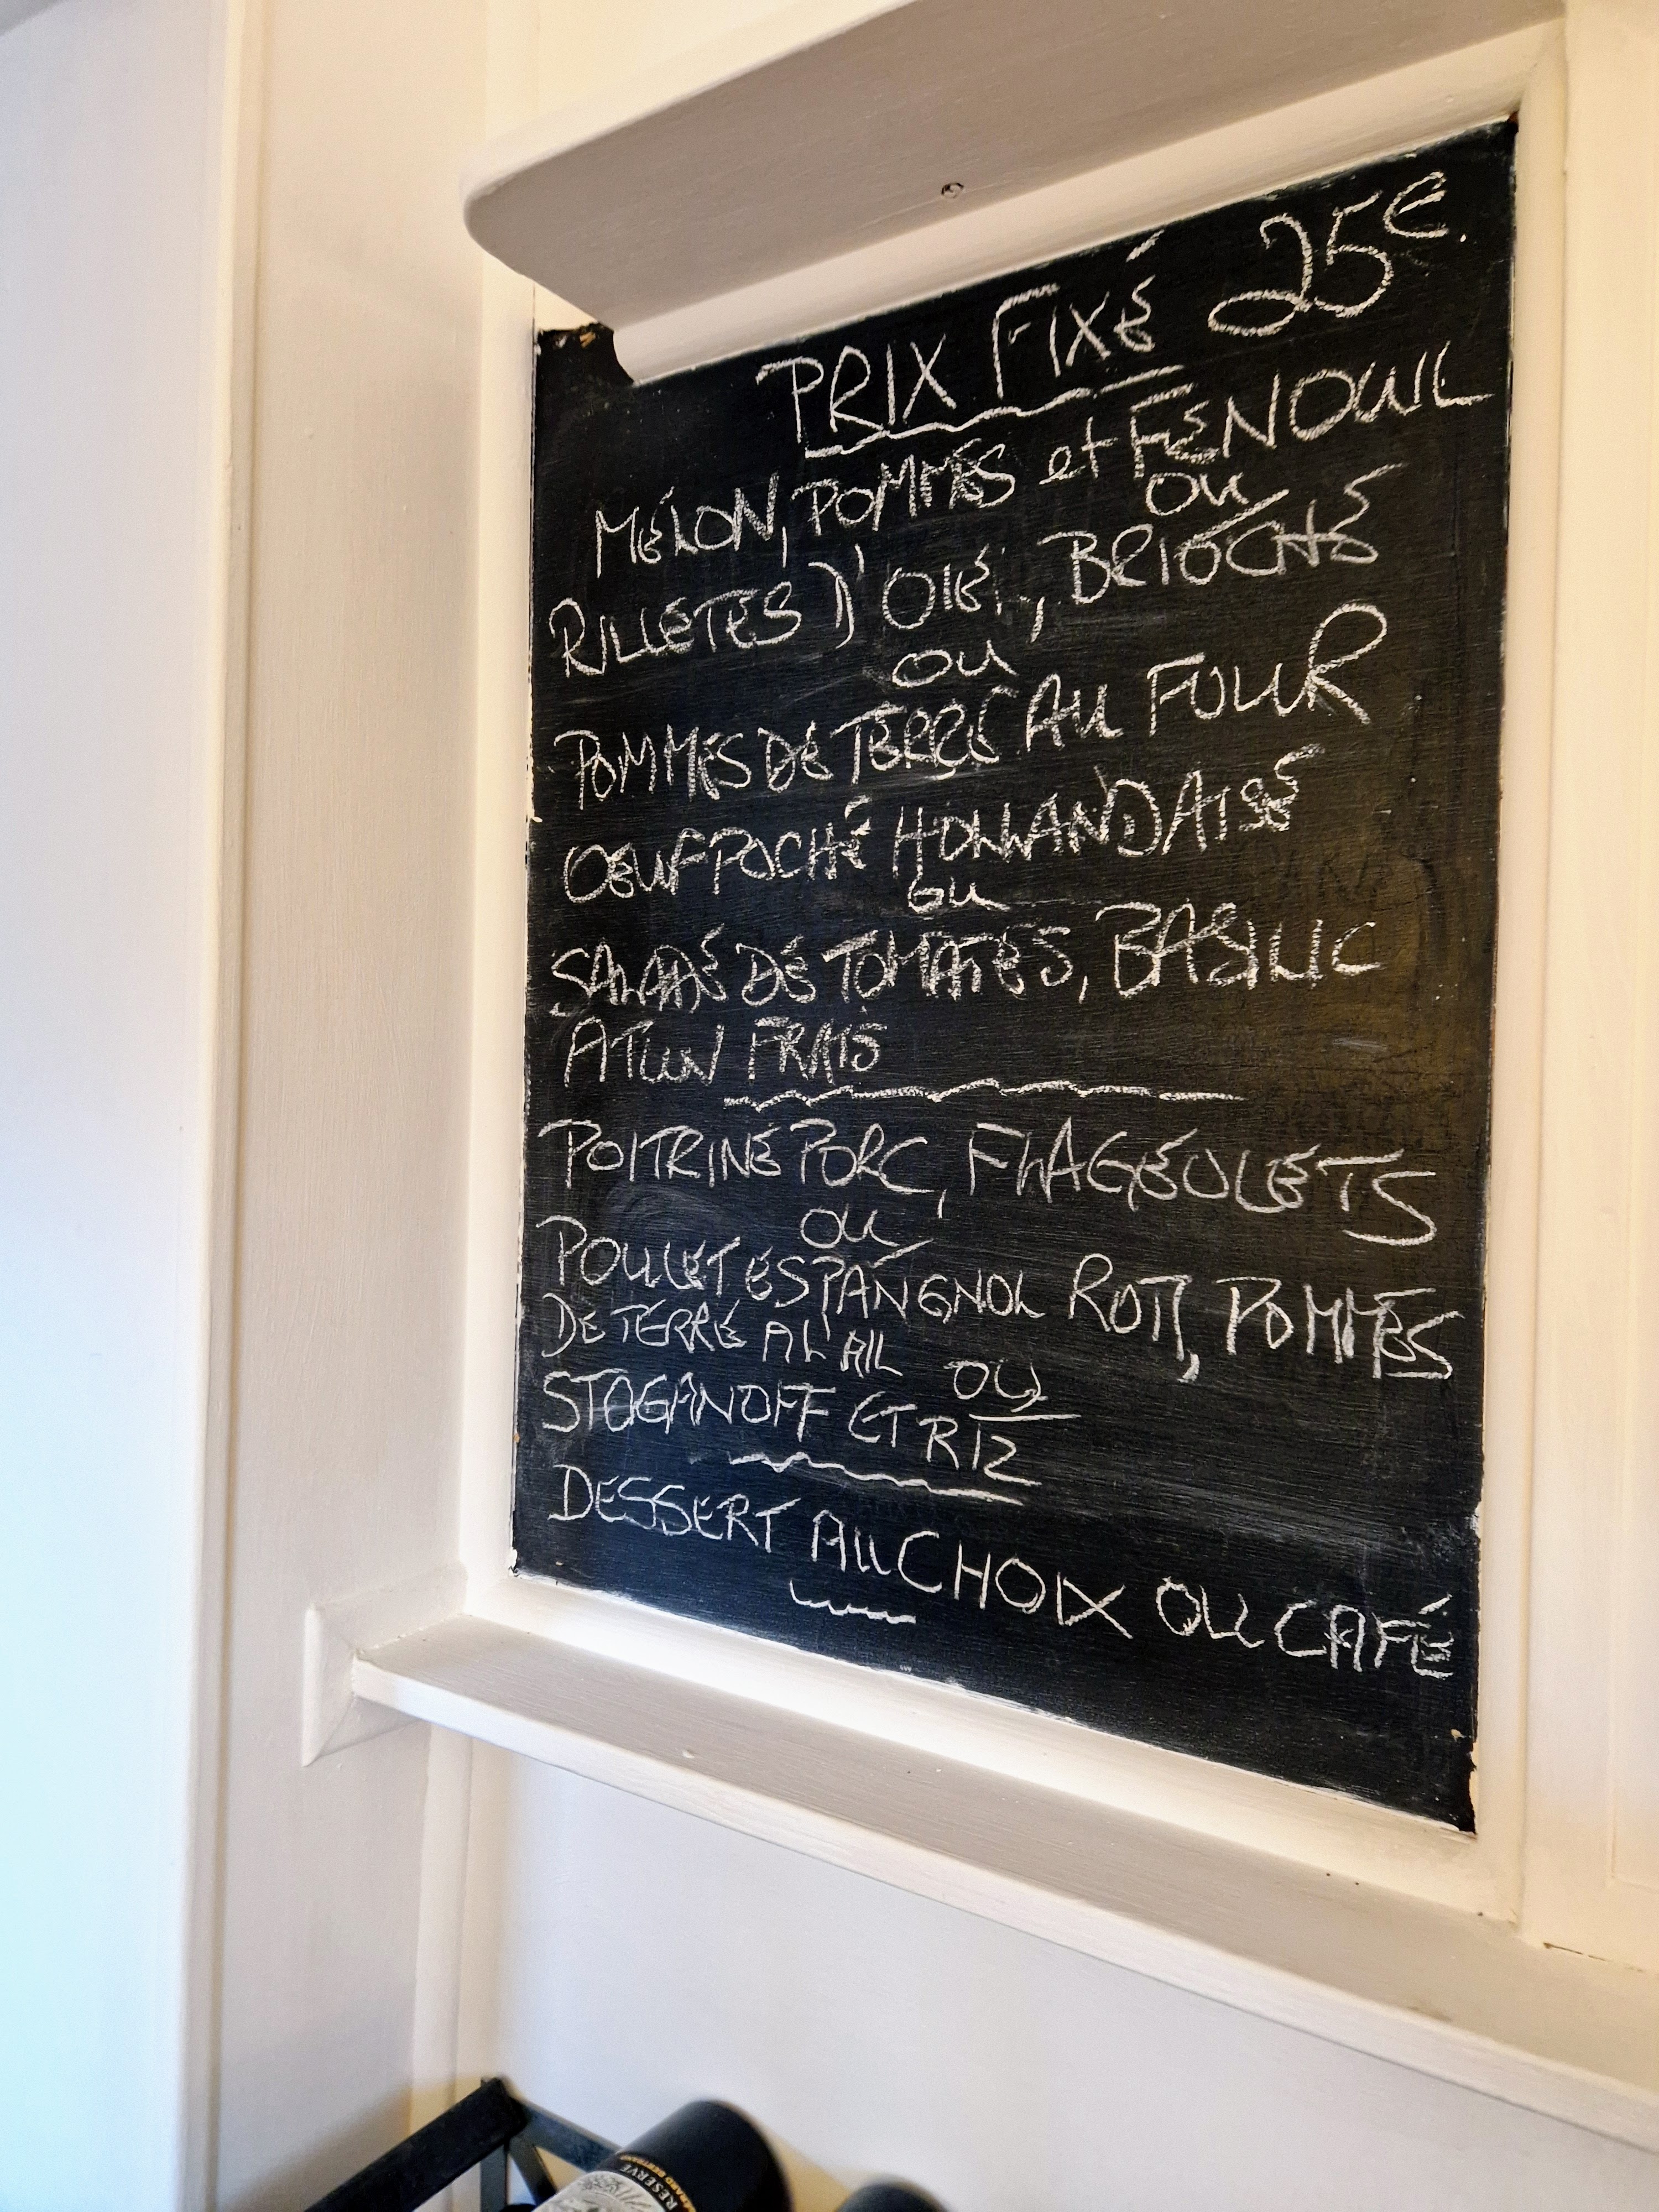 PRIX FIXÉ 25€.
MÉLON, POMMES et FENOUIL
ou
RILLETES D'OIE, BRIOCHE
ou
POMMES DE TERRE AU FOUR
OEUF POCHÉ HOLLANDAISE
ou
SALADE DE TOMATES, BASILIC
ATUN FRAIS
POITRINE PORC, FLAGEOLETS
ou
POULLET ESPANGNOL ROTI, POMMES
DE TERRE A L'AIL OU
STOGANOFF ET RIZ
DESSERT AU CHOIX OU CAFÉ
RESERVE
GÉRARD BERTRAND